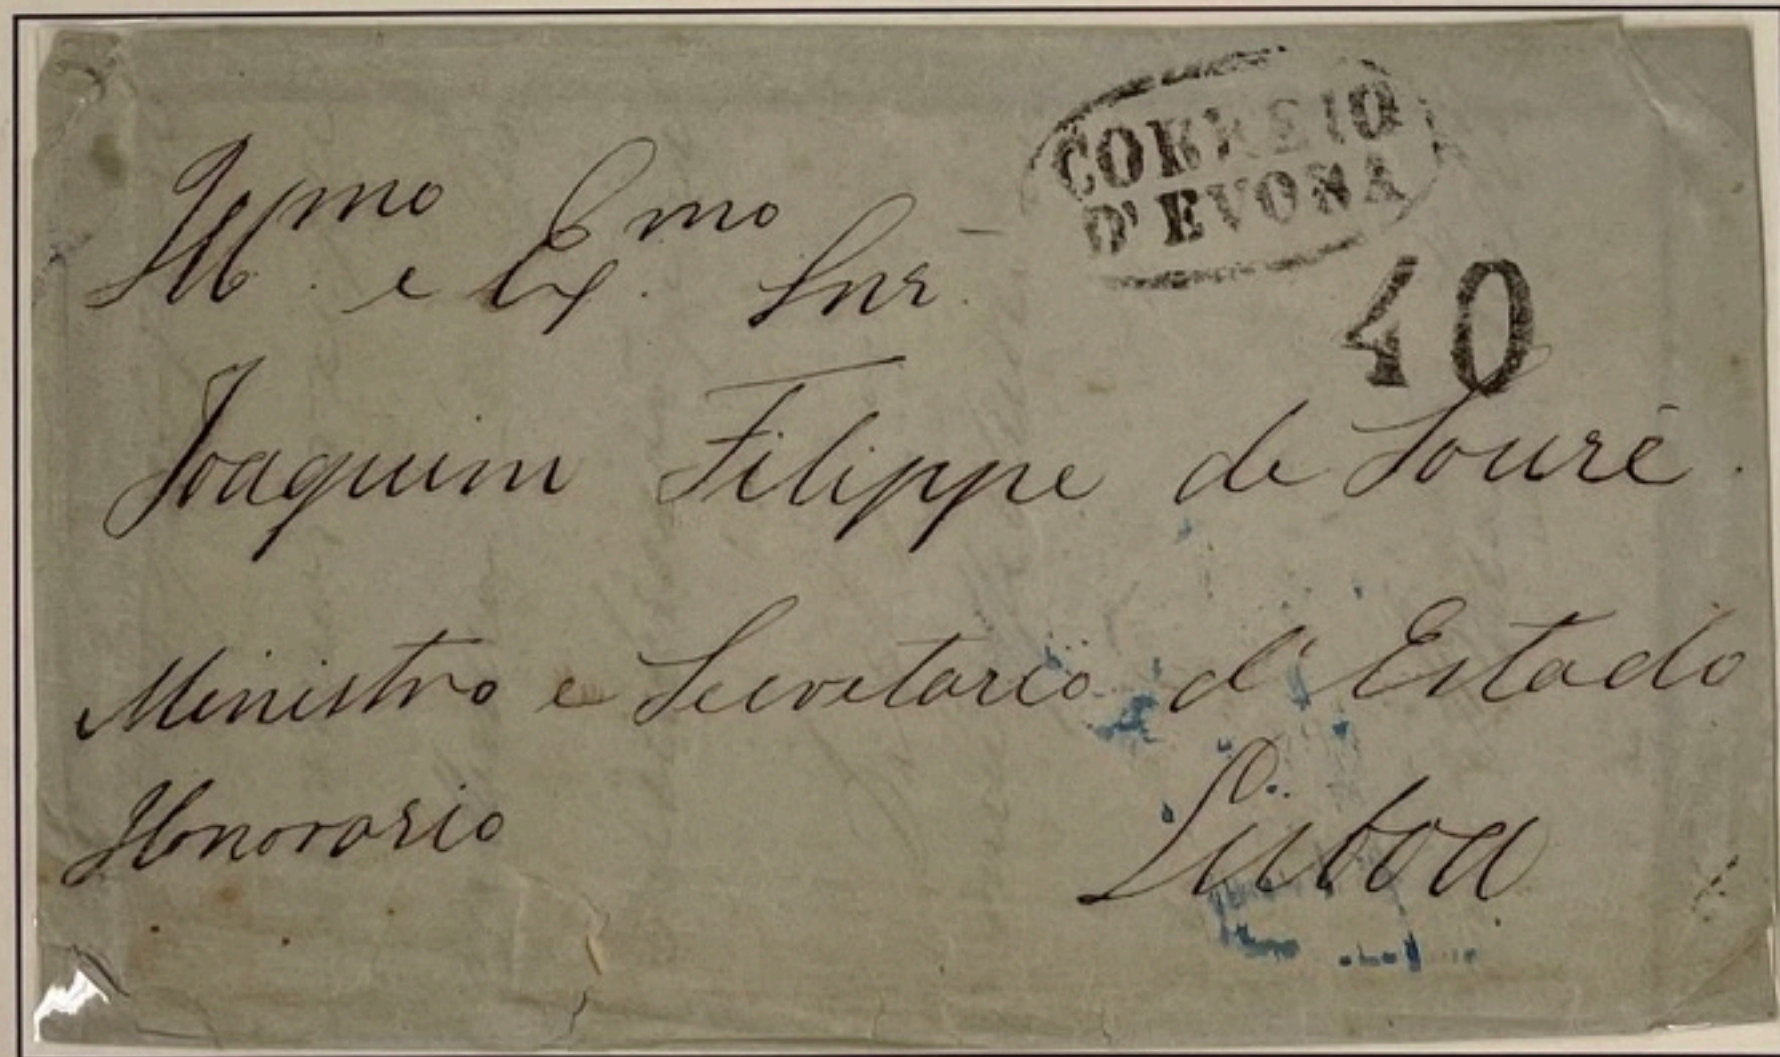 CORREIO
D'EVORA
40
Ill.mo e Ex.mo Snr.
Joaquim Filippe de Soure.
Ministro e Secretario d'Estado
Honorario
Lisboa